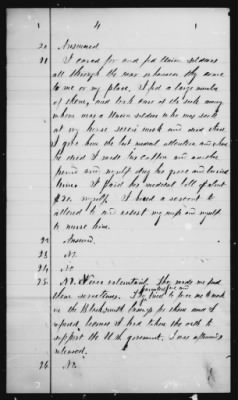 4
20. Answered
21 I cared for and fed Union soldiers
all through the war whenever they came
to me or my place. I fed a large number
of them, and took care of the sick among
whom was a Union soldier who was sick
at my house seven weeks and died there.
I gave him the best medical attention and when
he died I made his coffin and another
hand and myself dug his grave and buried
him. I paid his medical bill of about
$20. myself. I hired a servant to
attend to and assist my wife and myself
to nurse him.
22. Answered.
23 No.
24 No
25 No. Never voluntarily. They made me feed
them sometimes. They tried to force me to work
in the Blacksmith trade for them and I
refused, because I had taken the oath to
support the U.S. government. I was afterwards
released.
26 No.